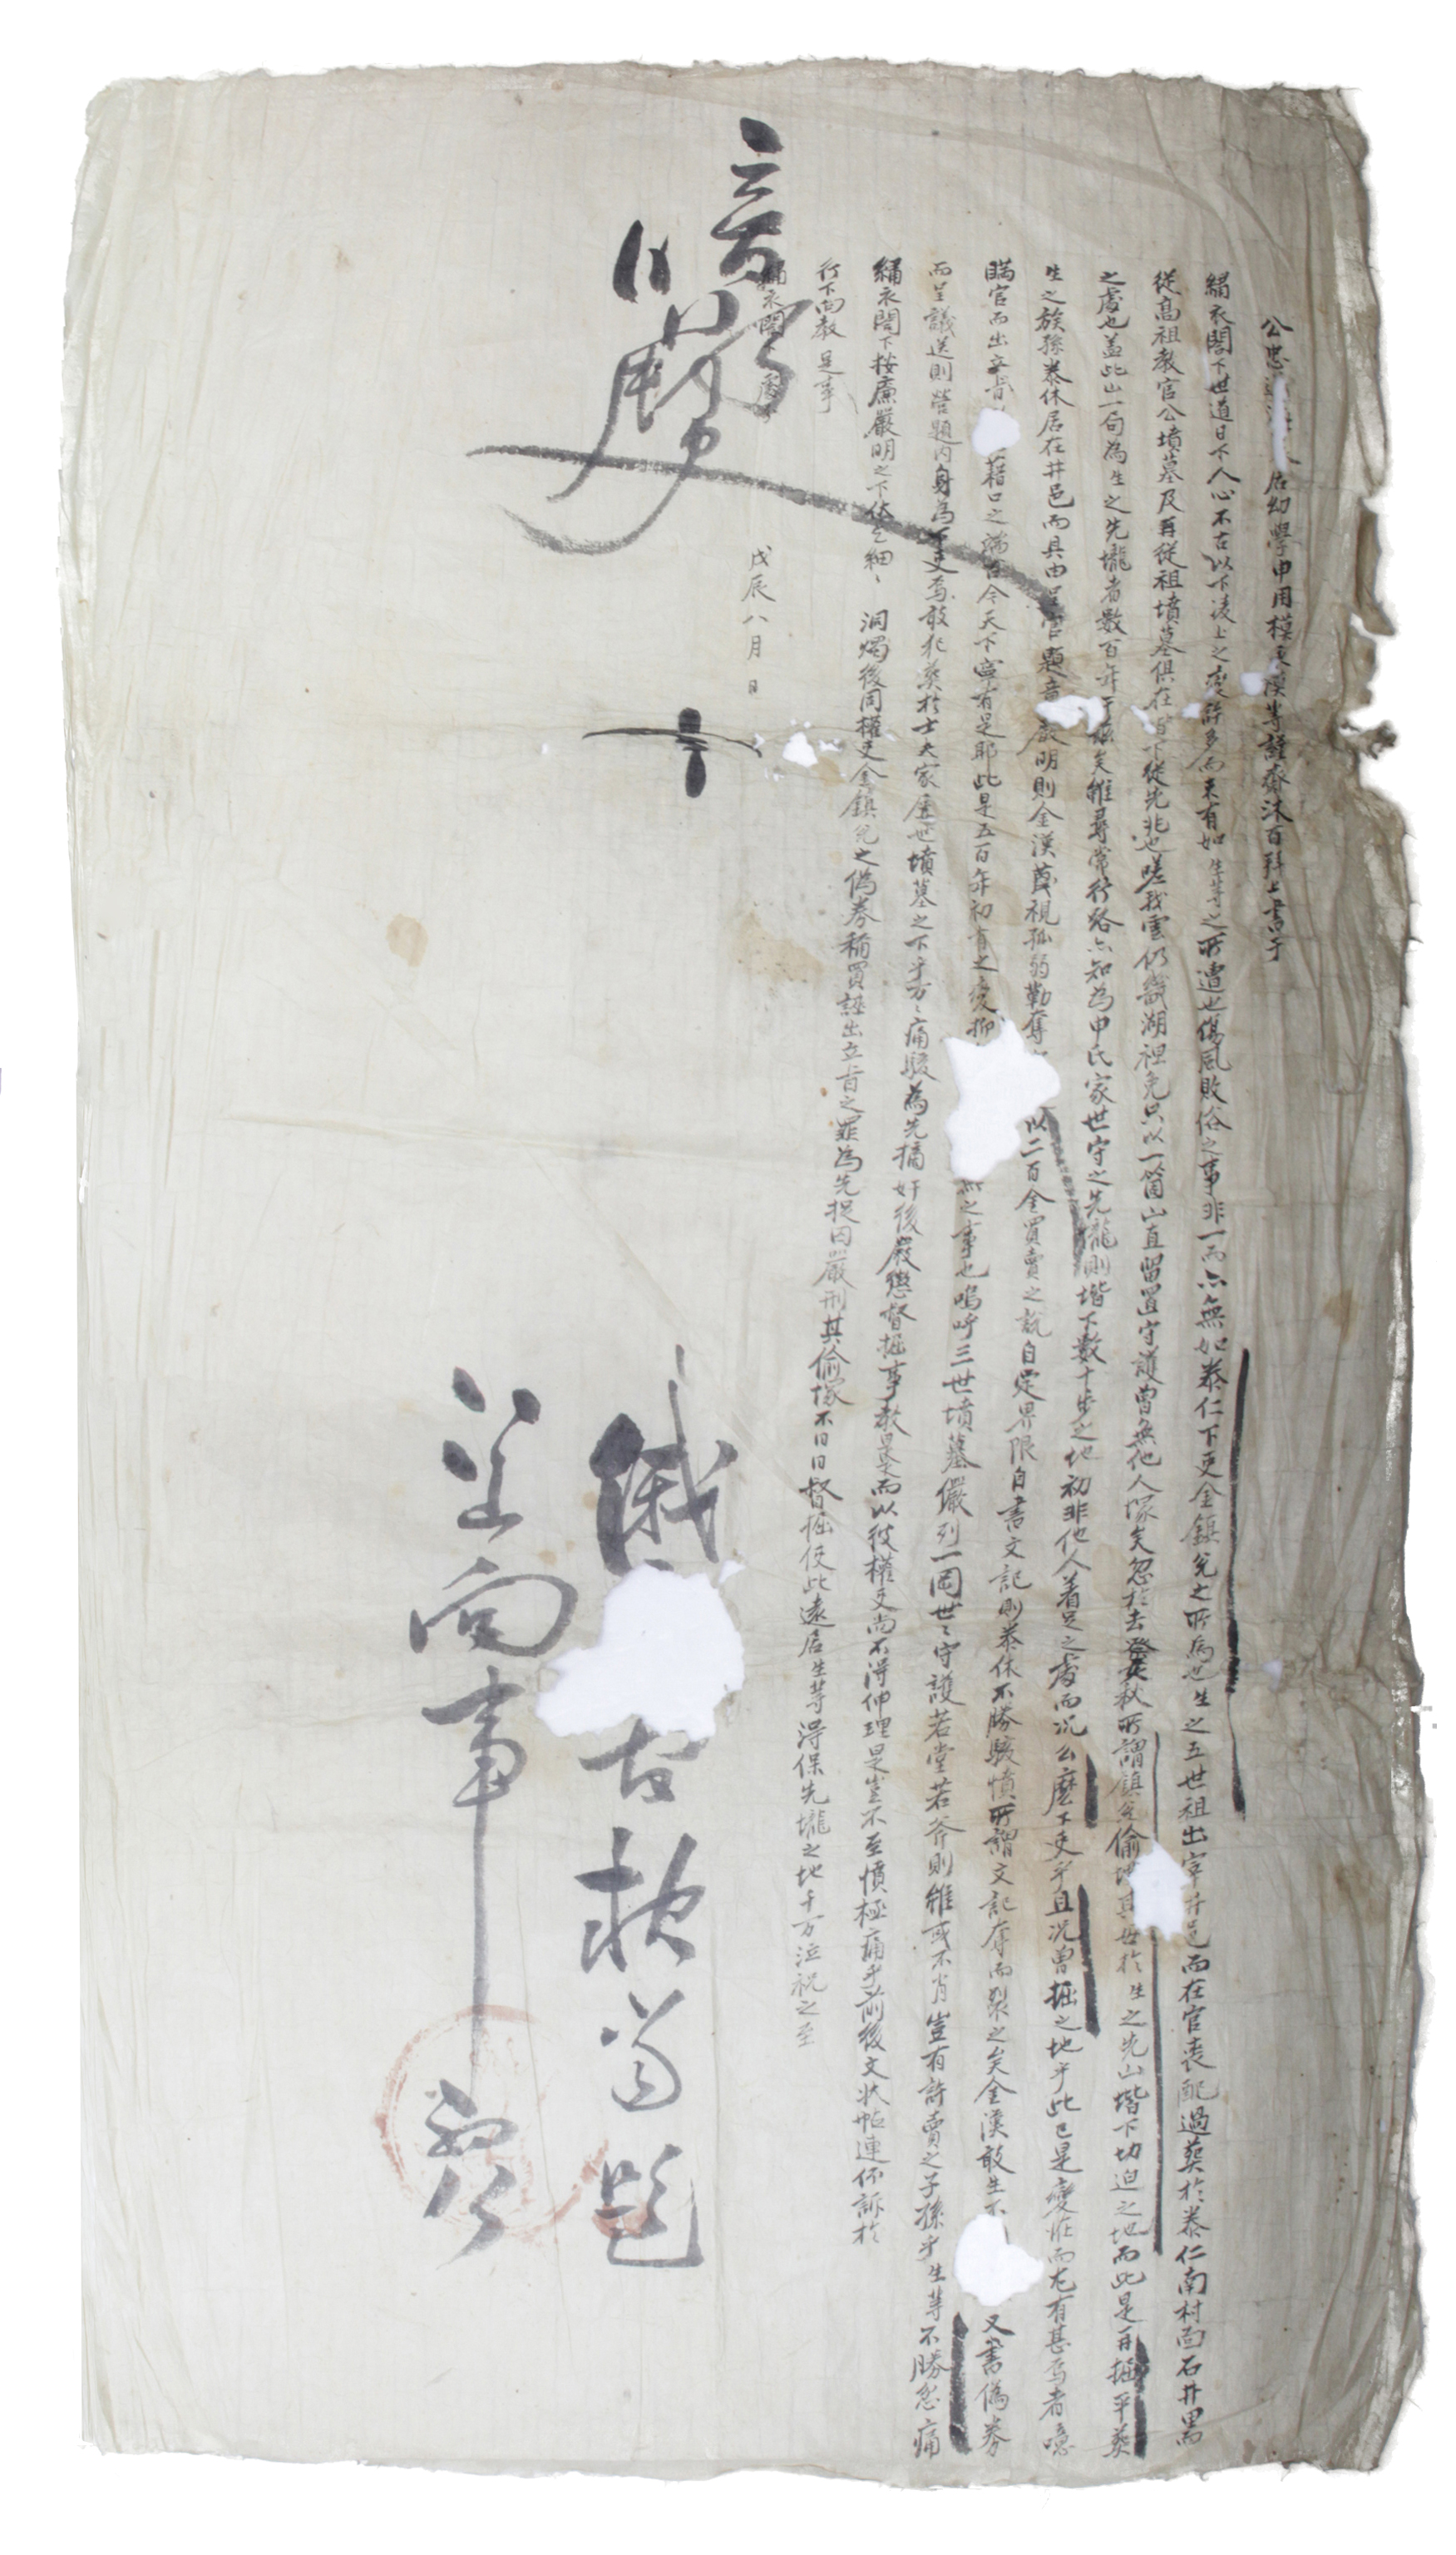 公忠道 居幼學申用模東漢等謹齋沐百拜上書于
繡衣閤下世道日下人心不古以下凌上之變許多而未有如生等之所遭也傷風敗俗之事非一而亦無如泰仁下吏金鎭兌之所爲也生之五世祖出宰井邑而在官喪配過葬於泰仁南村面石井里而
從高祖教官公墳墓及再從祖墳墓俱在 下從先兆也嗟我雲仍畿湖裡免只以一箇山直留置守護曾無他人塚矣忽於去癸秋所謂鎭兌偸 其母於生之先山堦下切迫之地而此是再掘平葬
之處也盖此山一局爲生之先壠者數百年于玆矣雖尋常行路亦知爲申氏家世守之先壠則堦下數十步之地初非他人着足之處而况么麽下吏乎且况曾掘之地乎此已是變怪而尤有甚焉者噫
生之族孫泰休居在井邑而具由呈官題音嚴明則金漢蔑視孤弱勒奪 以二百金買賣之說自定界限自書文記則泰休不勝駭憤所謂文記奪而裂之矣金漢敢生不 又書僞券
瞞官而出立旨 藉口之端自今天下寧有是耶此是五百年初有之變抑 之事也嗚呼三世墳墓儼列一岡世〻守護若堂若斧則雖或不肖豈有許賣之子孫乎生等不勝忿痛
而呈議送則營題內身爲下吏焉敢犯葬於士夫家屢世墳墓之下乎万〻痛駭爲先摘奸後嚴懲督掘事敎是而以彼權吏尙不得伸理是豈不至憤極痛乎前後文狀帖連伓訴於
繡衣閤下按廉嚴明之下伏乞細〻 洞燭後同權吏金鎭兌之僞券稱買誣出立旨之罪爲先捉囚嚴刑其偸塚不日督掘使此遠居生等得保先壠之地千万泣祝之至
行下向敎 是事
繡衣閤 處
戊辰八月 日
俄 故 題
向事